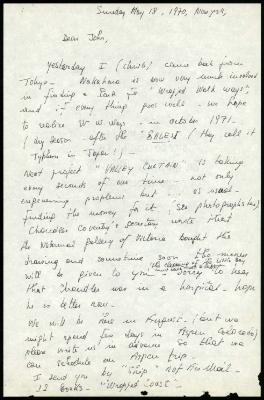 Sunday May 18, 1970, New York,
Dear John,
Yesterday I (Christo) came back from
Tokyo - Nakahara is now very much involved
in finding a park for "Wrapped Walk Ways",
and if every thing goes well - we hope
to realize W W Ways - in october 1971 -
(dry season - after the (they call it
Typhoon in Japan!)
Next project "VALLEY CURTAIN" is taking
every seconds of our time - not only
engineering problems but as usual -
finding the money for it (see photographs too)
Chandler Coventry's secretary wrote that
the National Gallery of Victoria bought the
drawing and sometime soon the money
will be given to you - sorry to hear
that Chandler was in a hospital - hope
he is better now -
We will be here in August - (but we
might spend few days in Aspen Colorado)
please write us in advance so that we
can schedule an Aspen trip.
I send you by "Ship" - not Air Mail -
12 books - "Wrapped Coast" -